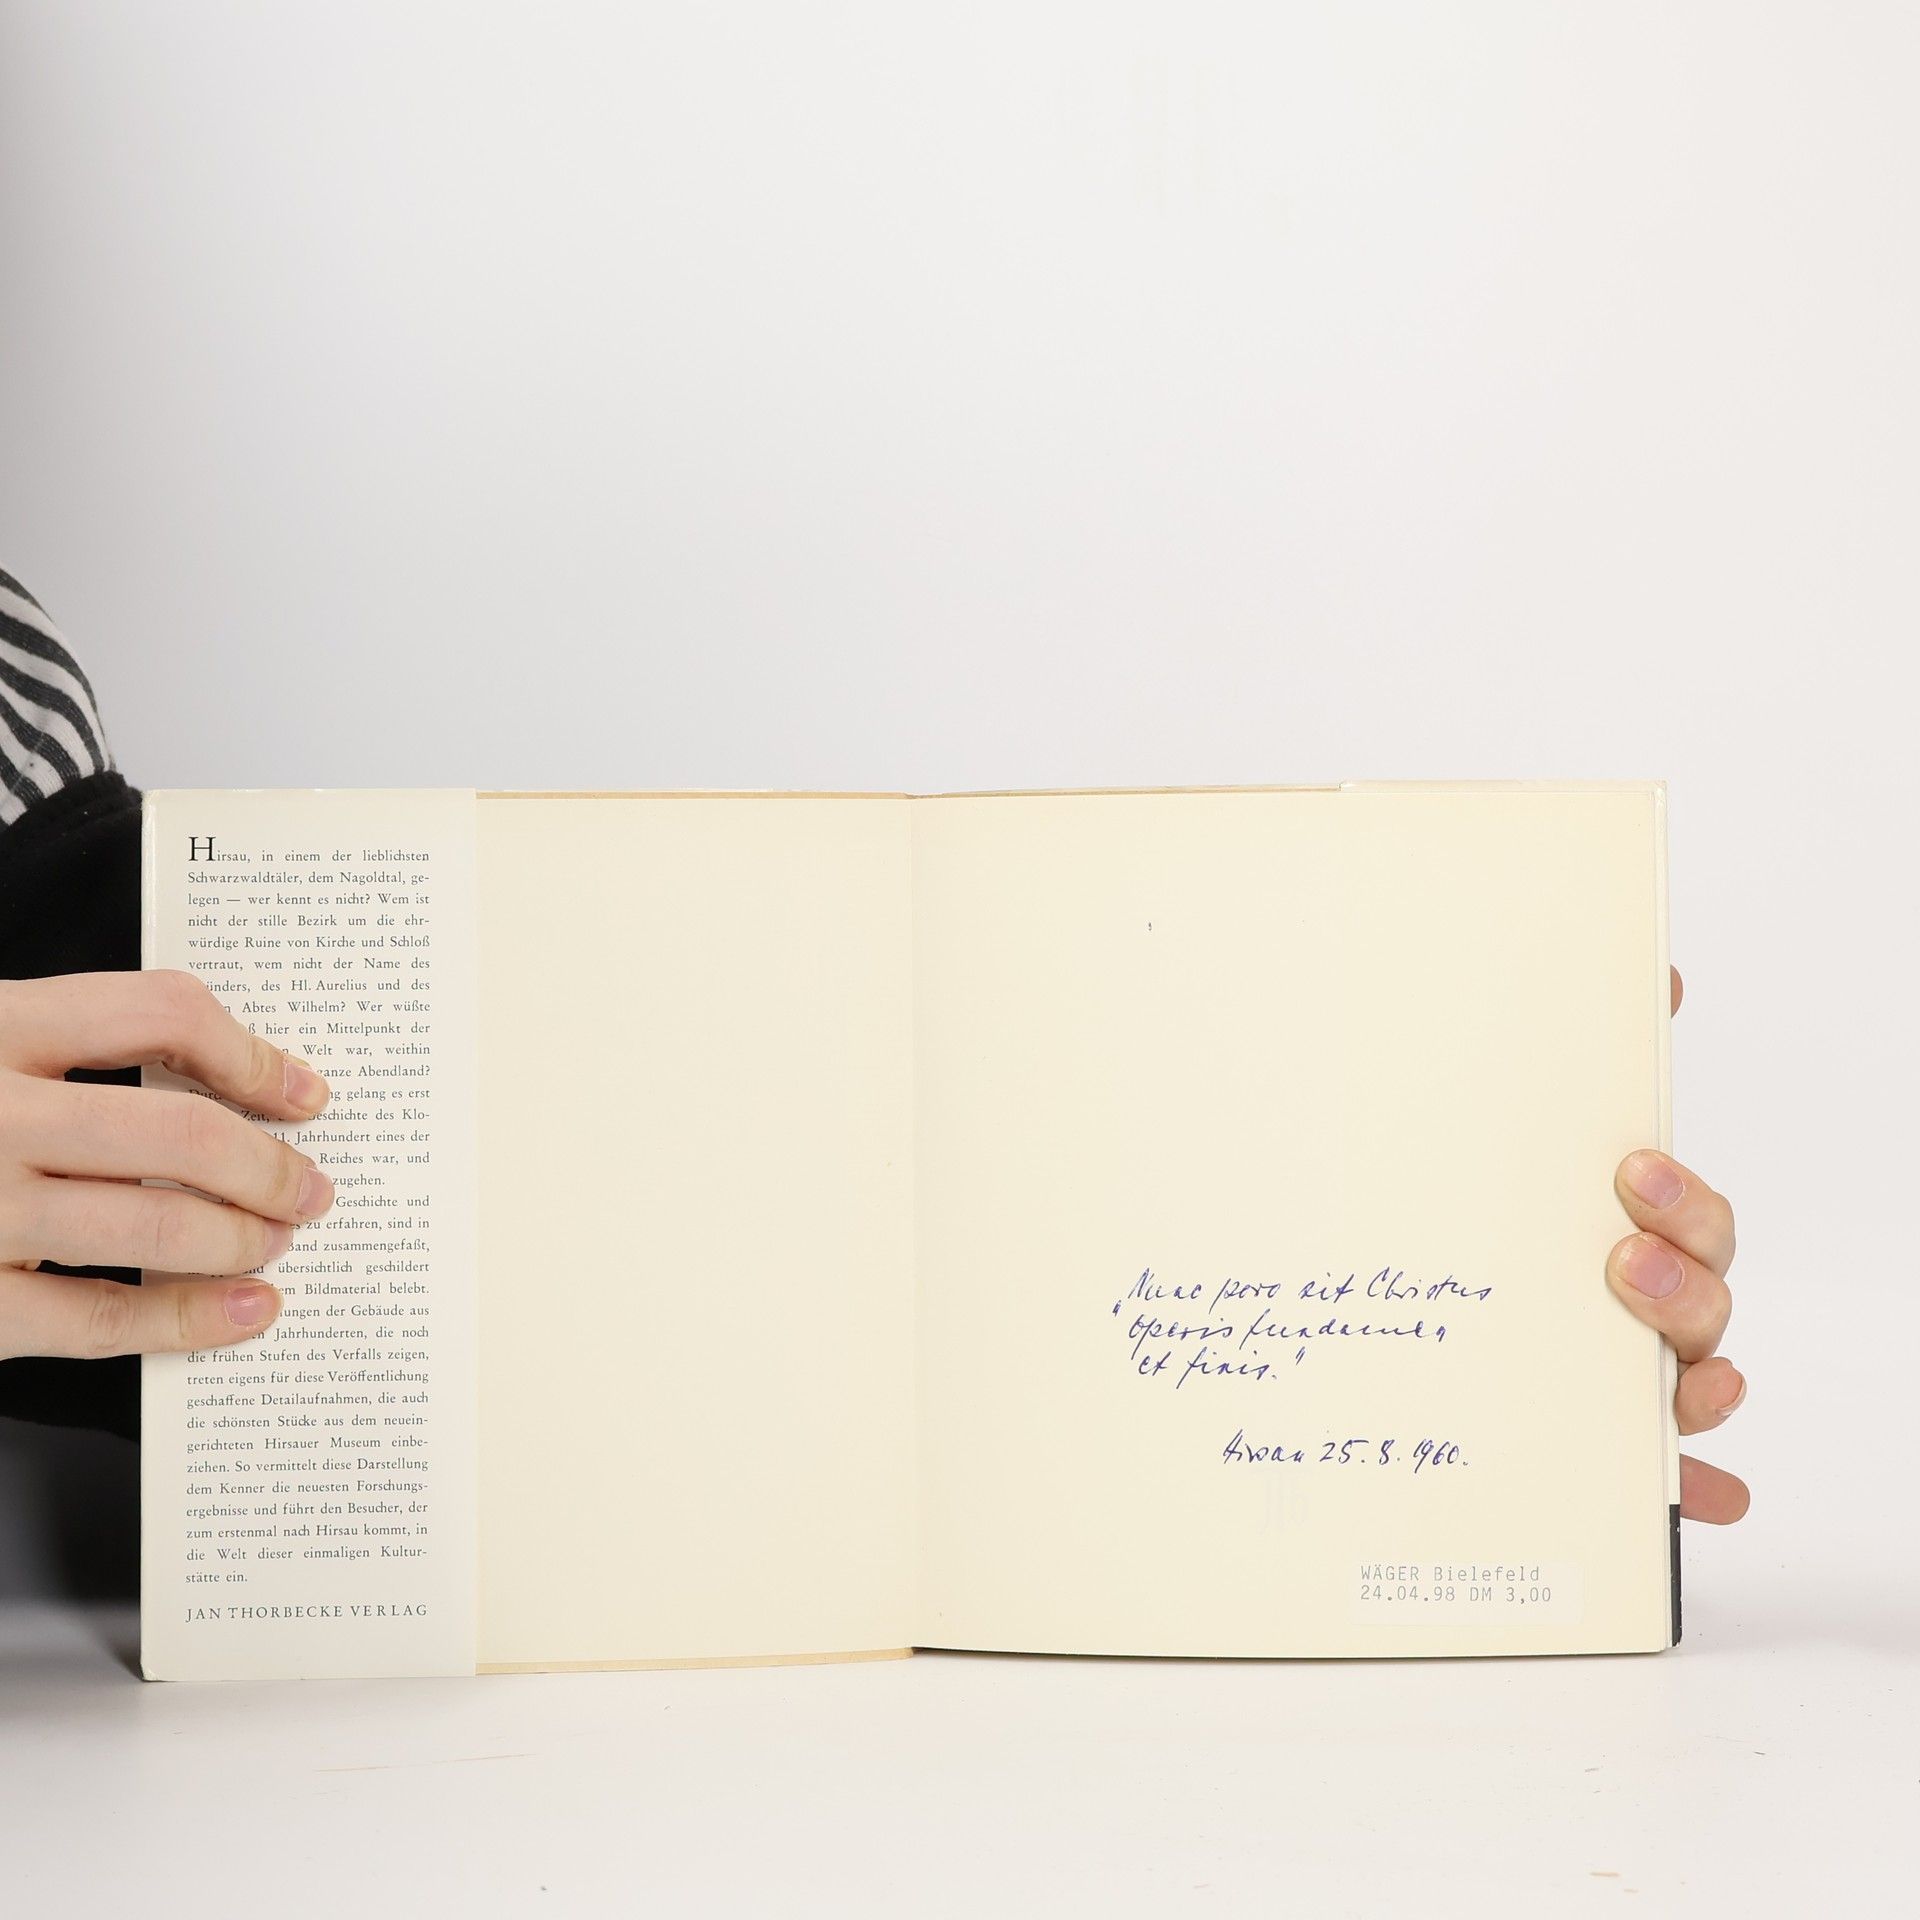 Hirsau, in einem der lieblichsten
Schwarzwaldtäler, dem Nagoldtal, ge-
legen — wer kennt es nicht? Wem ist
nicht der stille Bezirk um die ehr-
würdige Ruine von Kirche und Schloß
vertraut, wem nicht der Name des
ünders, des Hl. Aurelius und des
n Abtes Wilhelm? Wer wüßte
ß hier ein Mittelpunkt der
n Welt war, weithin
ganze Abendland?
ng gelang es erst
Zeit, Geschichte des Klo-
11. Jahrhundert eines der
Reiches war, und
zugehen.
Geschichte und
es zu erfahren, sind in
Band zusammengefaßt,
und übersichtlich geschildert
em Bildmaterial belebt.
lungen der Gebäude aus
en Jahrhunderten, die noch
die frühen Stufen des Verfalls zeigen,
treten eigens für diese Veröffentlichung
geschaffene Detailaufnahmen, die auch
die schönsten Stücke aus dem neuein-
gerichteten Hirsauer Museum einbe-
ziehen. So vermittelt diese Darstellung
dem Kenner die neuesten Forschungs-
ergebnisse und führt den Besucher, der
zum erstenmal nach Hirsau kommt, in
die Welt dieser einmaligen Kultur-
stätte ein.
JAN THORBECKE VERLAG
„Nunc pero sit Christus
operis fundamen
et finis."
Hirsau 25. 8. 1960.
WÄGER Bielefeld
24.04.98 DM 3,00